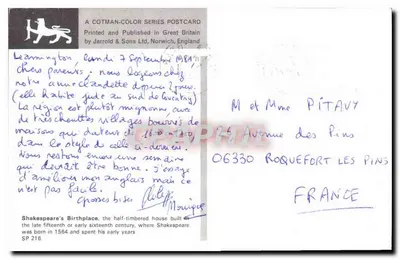 A COTMAN-COLOR SERIES POSTCARD
Printed and Published in Great Britain
by Jarrold & Sons Ltd, Norwich, England
Leamington, lundi 7 Septembre 1981
chers parents, nous logeons chez
notre amie Claudette depuis
(elle habite juste au sud de Coventry)
La région est plutôt mignonne avec
de très chouettes villages bourrés de
maisons qui datent de
dans le style de celle ci-dessus.
Nous restons encore une semaine
qui devrait être bonne. J'essaye
d'améliorer mon anglais mais ce
n'est pas facile.
Grosses bises
Monique
M et Mme PITAVY
Avenue des Pins
06330 ROQUEFORT LES PINS
FRANCE
Shakespeare's Birthplace, the half-timbered house built
the late fifteenth or early sixteenth century, where Shakespeare
was born in 1564 and spent his early years
SP 216